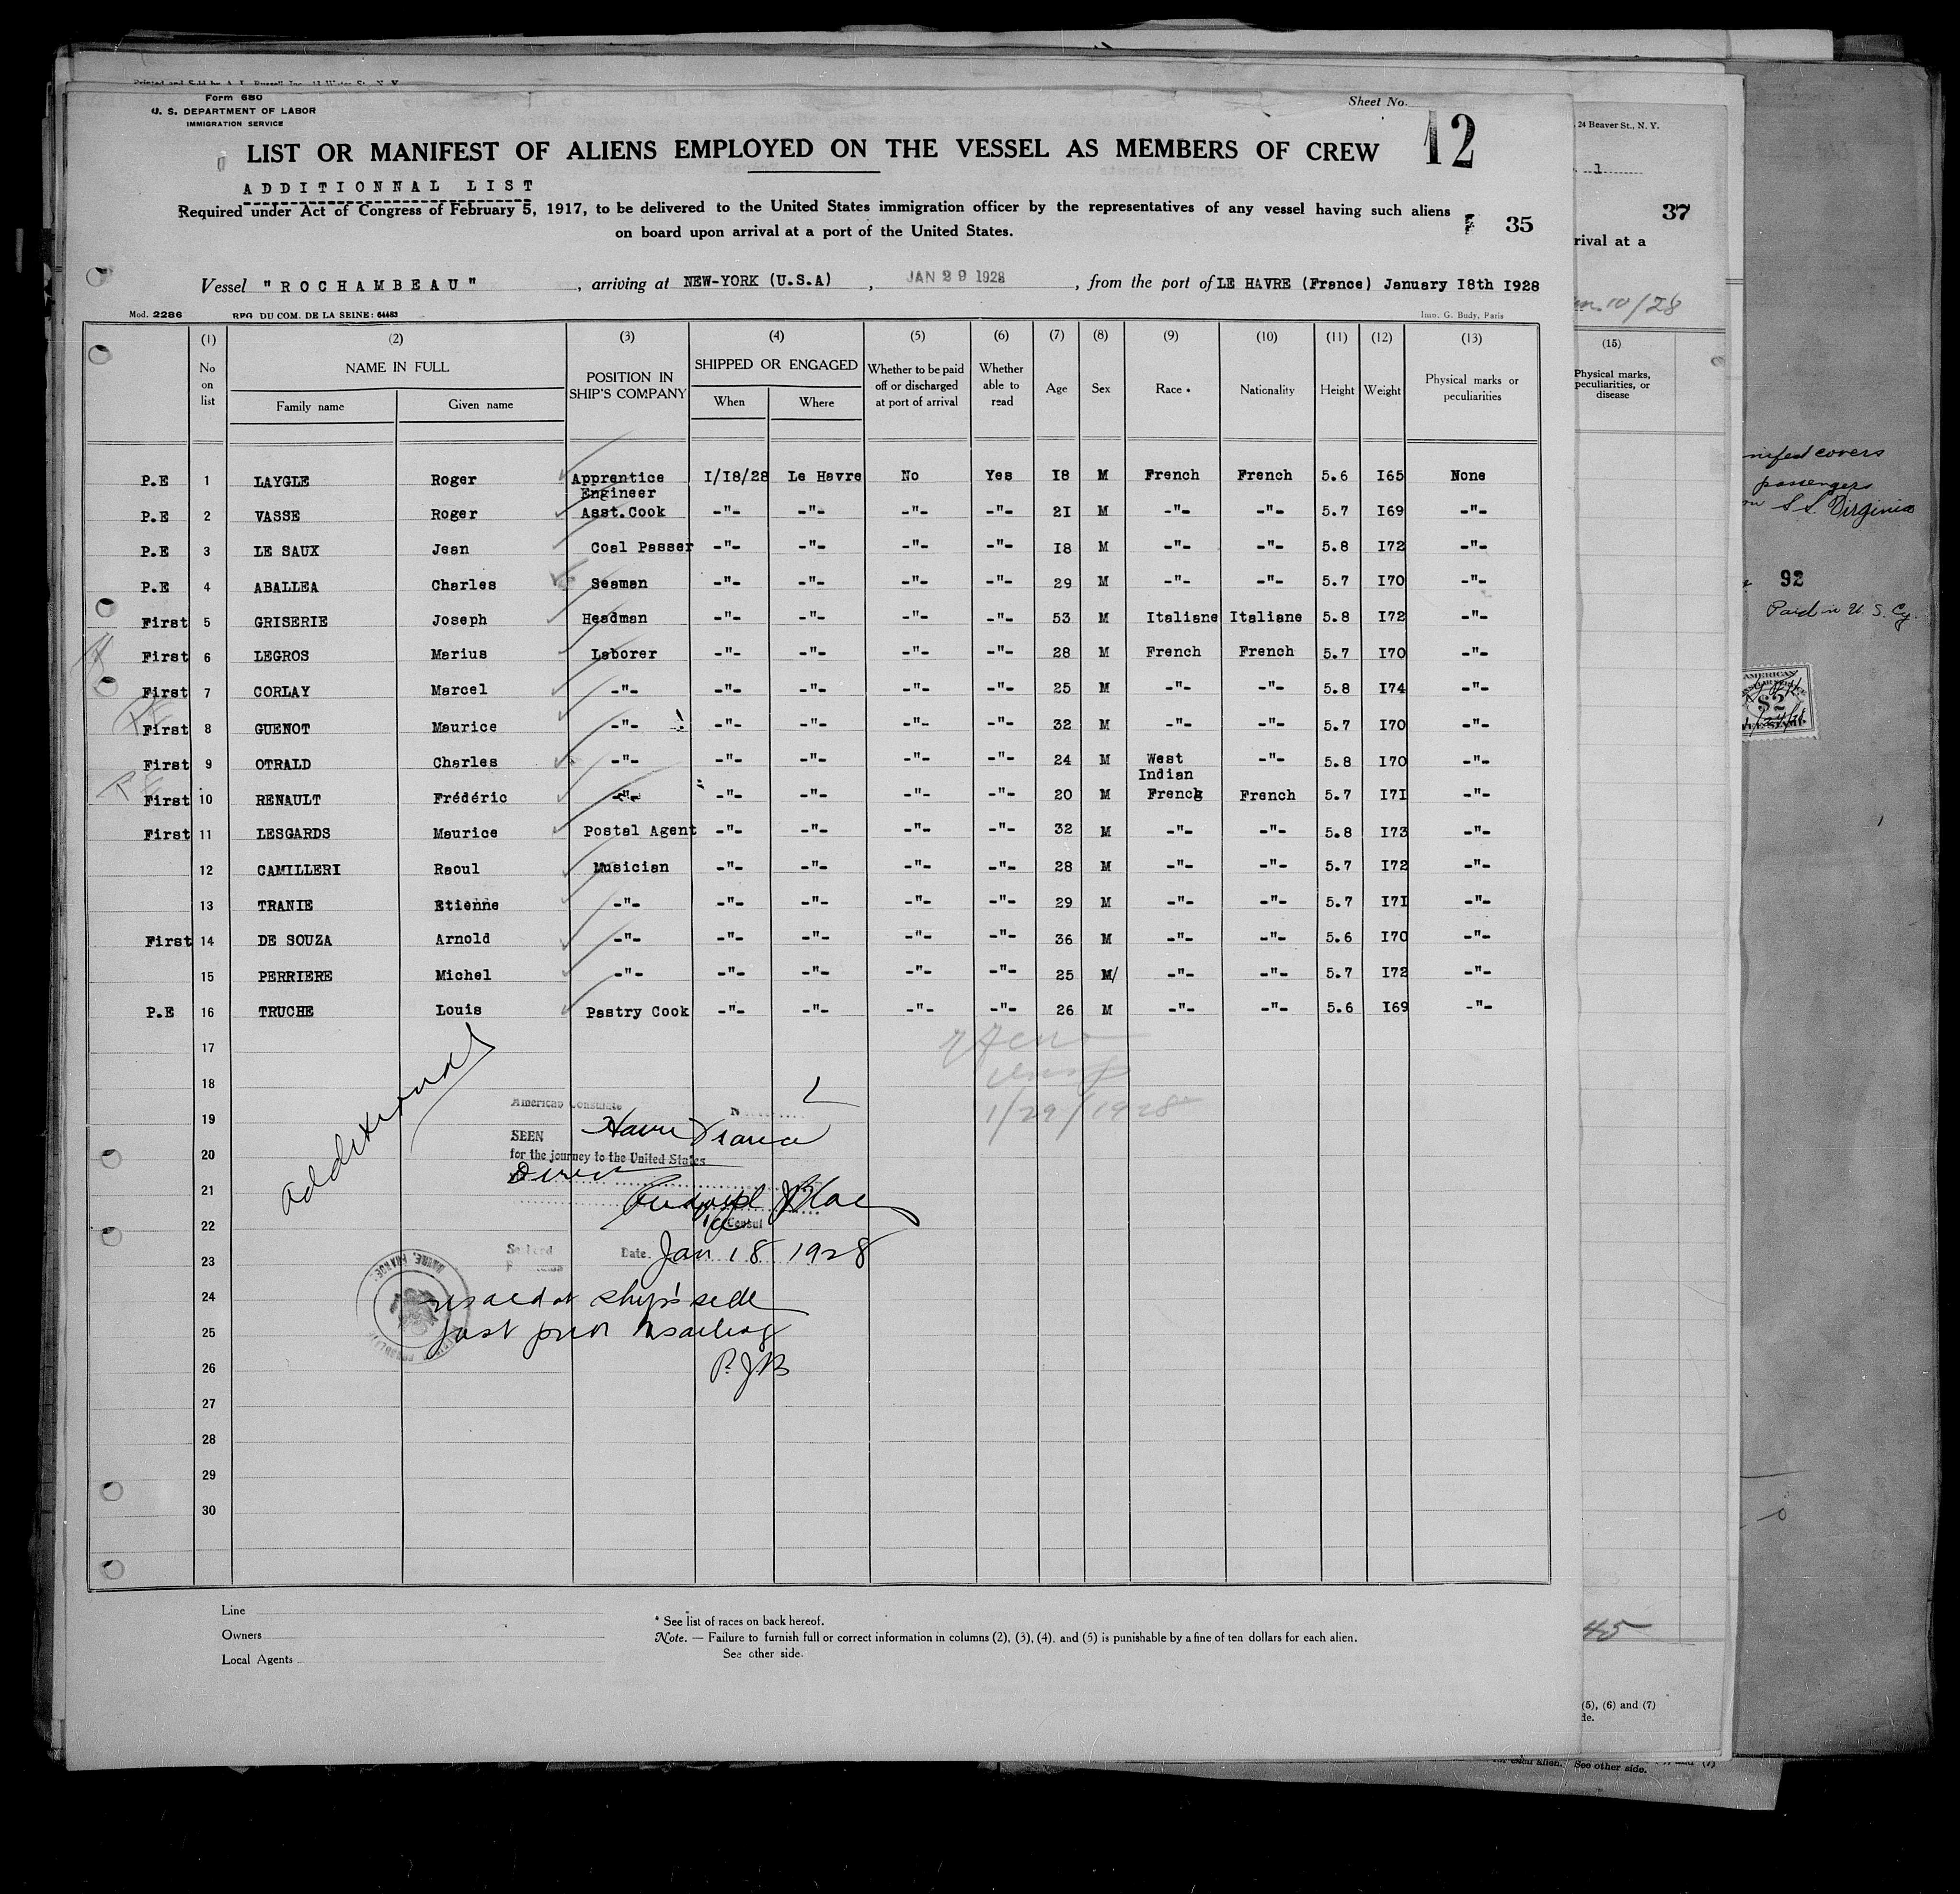 Printed and Sold by A. L. Russell Inc.
Form 680
U. S. DEPARTMENT OF LABOR
IMMIGRATION SERVICE
Sheet No.
12
LIST OR MANIFEST OF ALIENS EMPLOYED ON THE VESSEL AS MEMBERS OF CREW
ADDITIONNAL LIST
Required under Act of Congress of February 5, 1917, to be delivered to the United States immigration officer by the representatives of any vessel having such aliens
on board upon arrival at a port of the United States.
35
Vessel "ROCHAMBEAU", arriving at NEW-YORK (U.S.A), JAN 29 1928, from the port of LE HAVRE (France) January I8th I928
Mod. 2286 REG DU COM. DE LA SEINE: 64483 Imp. G. Budy, Paris
(1) (2) (3) (4) (5) (6) (7) (8) (9) (10) (11) (12) (13)
No on list NAME IN FULL Family name Given name POSITION IN SHIP'S COMPANY SHIPPED OR ENGAGED When Where Whether to be paid off or discharged at port of arrival Whether able to read Age Sex Race * Nationality Height Weight Physical marks or peculiarities
P.E 1 LAYGLE Roger Apprentice Engineer I/I8/28 Le Havre No Yes I8 M French French 5.6 I65 None
P.E 2 VASSE Roger Asst.Cook -"- -"- -"- -"- 2I M -"- -"- 5.7 I69 -"-
P.E 3 LE SAUX Jean Coal Passer -"- -"- -"- -"- I8 M -"- -"- 5.8 I72 -"-
P.E 4 ABALLEA Charles Seaman -"- -"- -"- -"- 29 M -"- -"- 5.7 I70 -"-
First 5 GRISERIE Joseph Headman -"- -"- -"- -"- 53 M Italiane Italiane 5.8 I72 -"-
First 6 LEGROS Marius Laborer -"- -"- -"- -"- 28 M French French 5.7 I70 -"-
First 7 CORLAY Marcel -"- -"- -"- -"- -"- 25 M -"- -"- 5.8 I74 -"-
First 8 GUENOT Maurice -"- -"- -"- -"- -"- 32 M -"- -"- 5.7 I70 -"-
First 9 OTRALD Charles -"- -"- -"- -"- -"- 24 M West Indian -"- 5.8 I70 -"-
First 10 RENAULT Frédéric -"- -"- -"- -"- -"- 20 M French French 5.7 I7I -"-
First 11 LESGARDS Maurice Postal Agent -"- -"- -"- -"- 32 M -"- -"- 5.8 I73 -"-
12 CAMILLERI Raoul Musician -"- -"- -"- -"- 28 M -"- -"- 5.7 I72 -"-
13 TRANIE Etienne -"- -"- -"- -"- -"- 29 M -"- -"- 5.7 I7I -"-
First 14 DE SOUZA Arnold -"- -"- -"- -"- -"- 36 M -"- -"- 5.6 I70 -"-
15 PERRIERE Michel -"- -"- -"- -"- -"- 25 M/ -"- -"- 5.7 I72 -"-
P.E 16 TRUCHE Louis Pastry Cook -"- -"- -"- -"- 26 M -"- -"- 5.6 I69 -"-
17
18
19
20
21
22
23
24
25
26
27
28
29
30
PE
PE
additional
1/29/1928
American Consulate
SEEN Havre France
for the journey to the United States
Direct
Consul
Date. Jan 18 1928
visaed at ship's side
just prior to sailing
R.J.B
Line
Owners
Local Agents
* See list of races on back hereof.
Note. — Failure to furnish full or correct information in columns (2), (3), (4). and (5) is punishable by a fine of ten dollars for each alien.
See other side.
24 Beaver St., N. Y.
1
37
rival at a
10/28
(15)
Physical marks,
peculiarities, or
disease
45
(5), (6) and (7)
de.
alien. See other side.
(7)
covers
passengers
on S.S. Virginia
92
Paid in U. S. Cy.
AMERICAN
$2